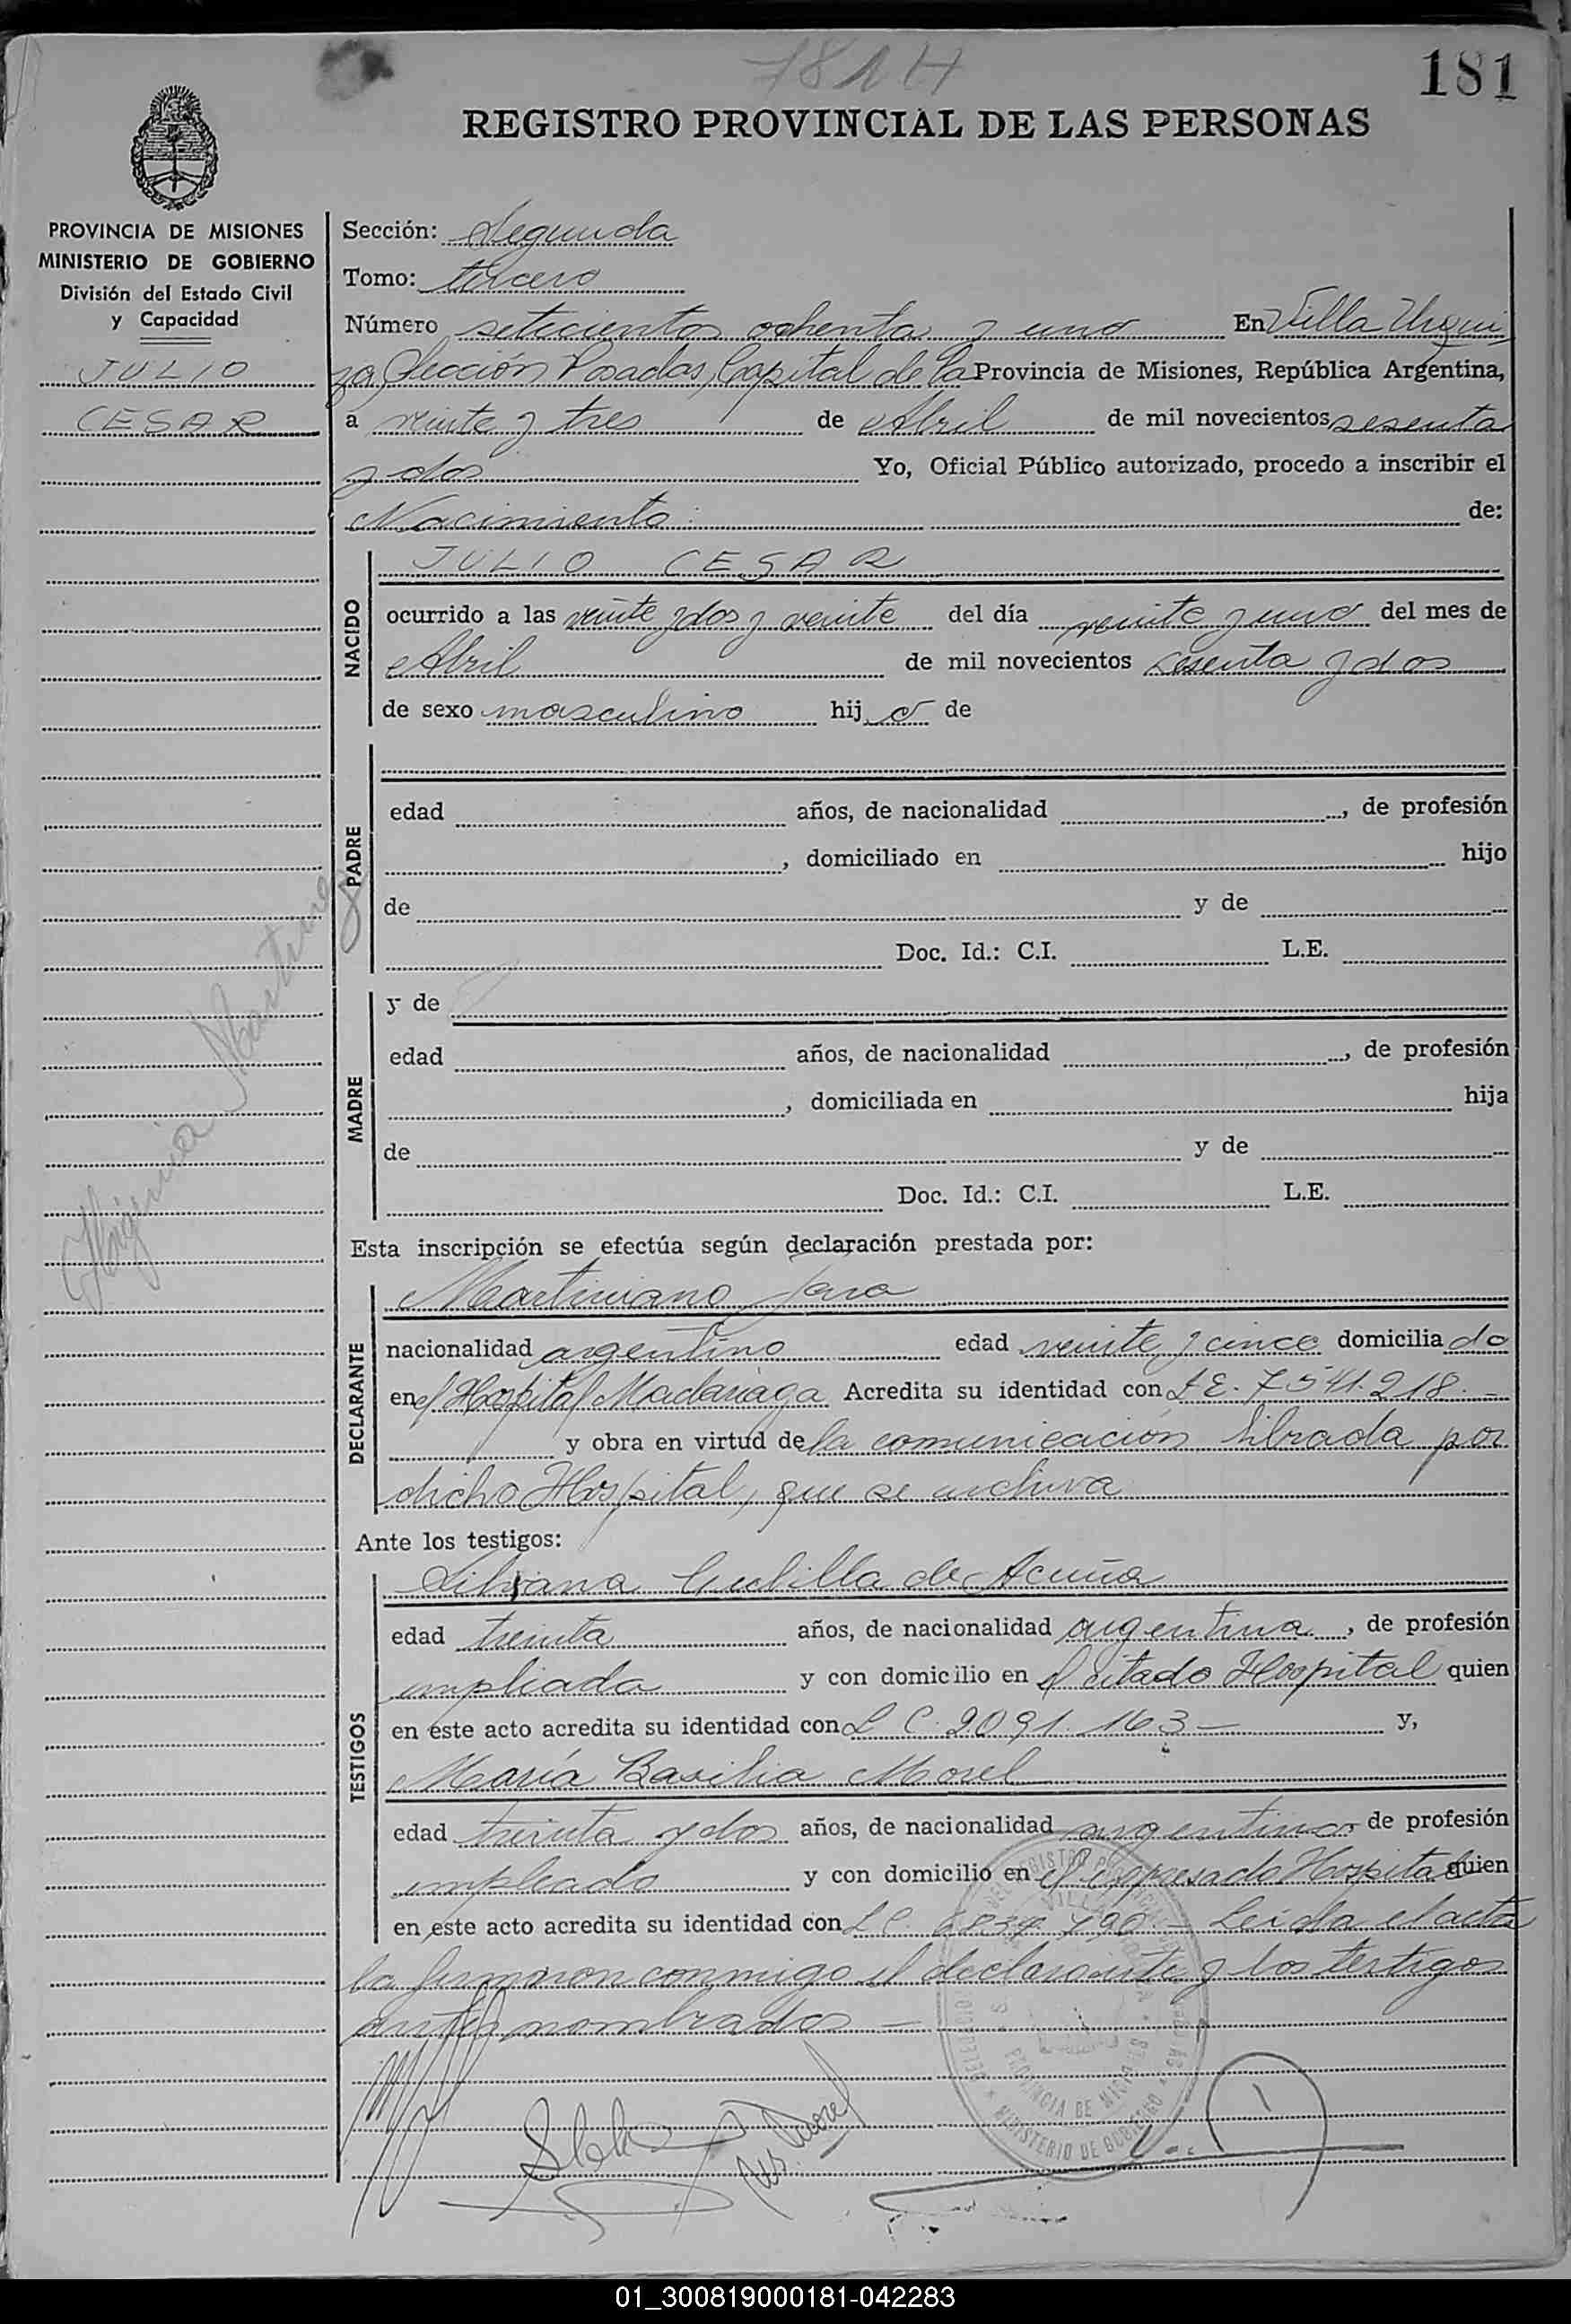 781 H
181
REGISTRO PROVINCIAL DE LAS PERSONAS
PROVINCIA DE MISIONES
MINISTERIO DE GOBIERNO
División del Estado Civil
y Capacidad
JULIO
CESAR
Higinia Martinez
Sección: Segunda
Tomo: tercero
Número setecientos ochenta y uno En Villa Urqui
za, Sección Posadas, Capital de la Provincia de Misiones, República Argentina,
a veinte y tres de Abril de mil novecientos sesenta
y dos Yo, Oficial Público autorizado, procedo a inscribir el
Nacimiento: de:
NACIDO
JULIO CESAR
ocurrido a las veinte y dos y veinte del día veinte y uno del mes de
Abril de mil novecientos sesenta y dos
de sexo masculino hijo de
PADRE
edad años, de nacionalidad , de profesión
, domiciliado en hijo
de y de
Doc. Id.: C.I. L.E.
MADRE
y de
edad años, de nacionalidad , de profesión
, domiciliada en hija
de y de
Doc. Id.: C.I. L.E.
Esta inscripción se efectúa según declaración prestada por:
DECLARANTE
Martiniano Jara
nacionalidad argentino edad veinte y cinco domiciliado
en el Hospital Madariaga Acredita su identidad con L E. 7541.218. -
y obra en virtud de la comunicación librada por
dicho Hospital, que se archiva
Ante los testigos:
TESTIGOS
Libiana Cubilla de Acuña
edad treinta años, de nacionalidad argentina , de profesión
empleada y con domicilio en el citado Hospital quien
en este acto acredita su identidad con L C. 2.091.163 - y,
María Basilia Morel
edad treinta y dos años, de nacionalidad argentina de profesión
empleada y con domicilio en el expresado Hospital quien
en este acto acredita su identidad con L C. 790. - Leida el acta
la firmaron conmigo el declarante y los testigos
antes nombrados -
MINISTERIO DE GOBIERNO
PROVINCIA DE MISIONES
01_300819000181-042283